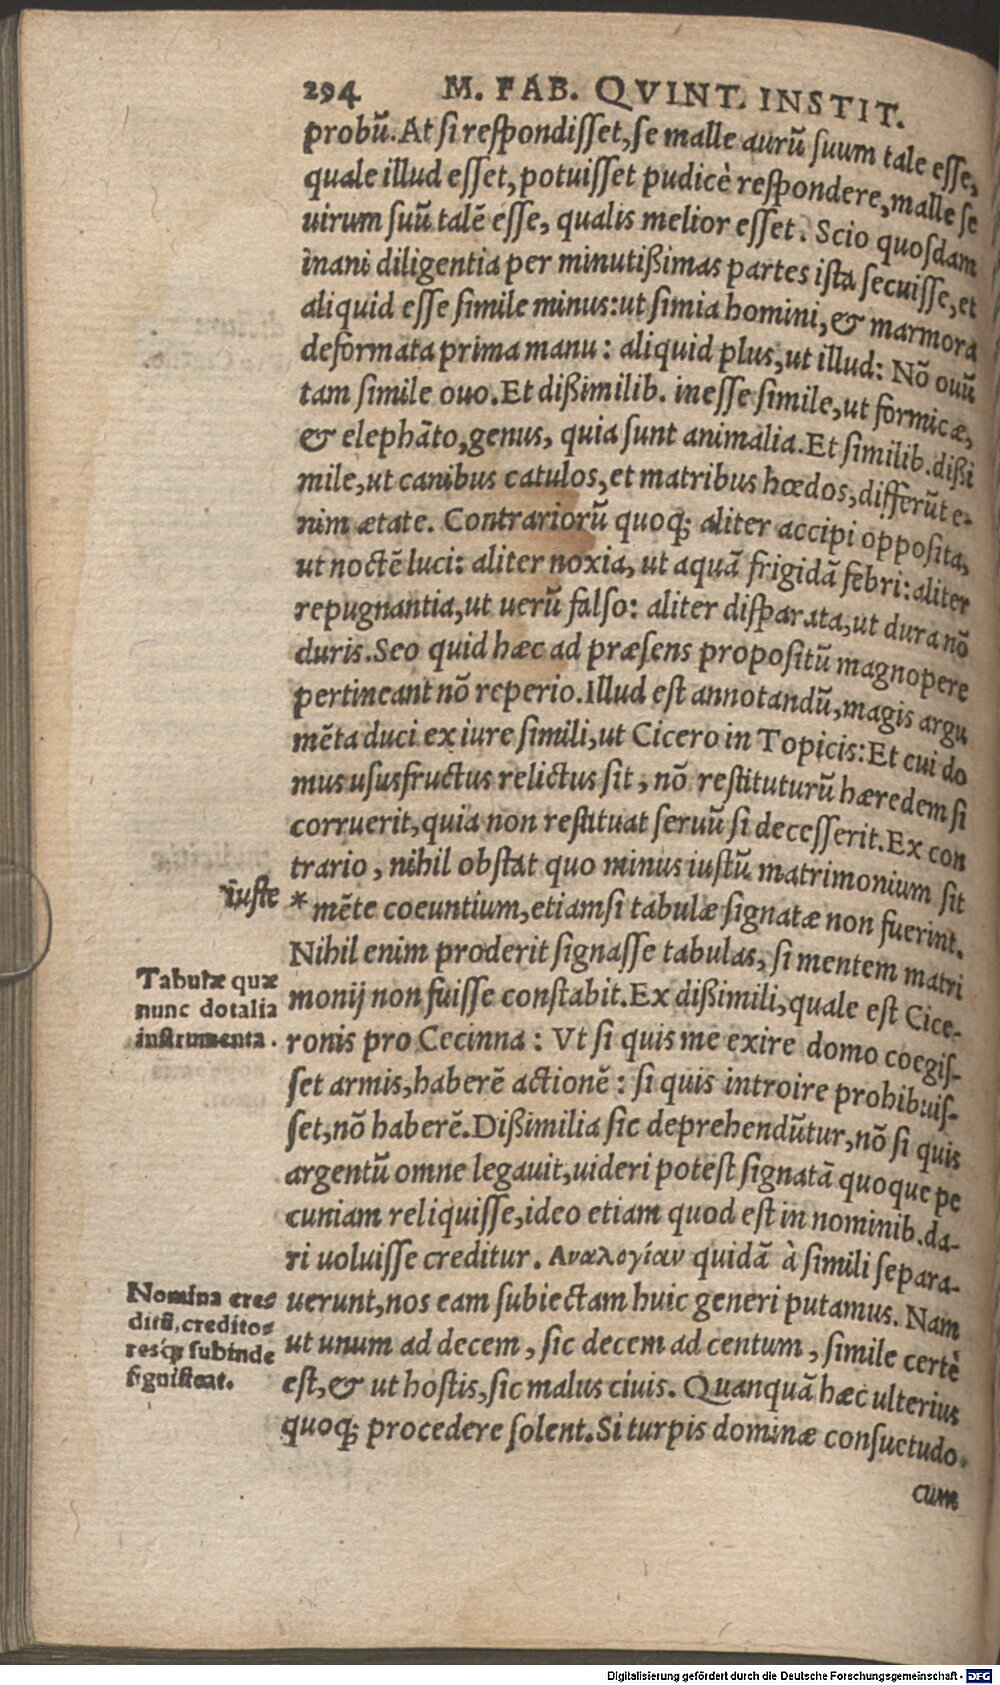 294 M. FAB. QVINT. INSTIT.
probũ. At si respondisset, se malle aurũ suum tale esse,
quale illud esset, potuisset pudicè respondere, malle se
uirum suũ talẽ esse, qualis melior esset. Scio quosdam
inani diligentia per minutißimas partes ista secuisse, et
aliquid esse simile minus: ut simia homini, & marmora
deformata prima manu: aliquid plus, ut illud: Nõ ouũ
tam simile ouo. Et dißimilib. inesse simile, ut formicæ,
& elephãto, genus, quia sunt animalia. Et similib. dißi
mile, ut canibus catulos, et matribus hœdos, differũt e-
nim ætate. Contrariorũ quoq; aliter accipi opposita,
ut noctẽ luci: aliter noxia, ut aquã frigidã febri: aliter
repugnantia, ut uerũ falso: aliter disparata, ut dura nõ
duris. Seo quid hæc ad præsens propositũ magnopere
pertineant nõ reperio. Illud est annotandũ, magis argu
mẽta duci ex iure simili, ut Cicero in Topicis: Et cui do
mus ususfructus relictus sit, nõ restituturũ hæredem si
corruerit, quia non restituat seruũ si decesserit. Ex con
trario, nihil obstat quo minus iustũ matrimonium sit
iuste * mẽte coeuntium, etiamsi tabulæ signatæ non fuerint.
Nihil enim proderit signasse tabulas, si mentem matri
Tabulæ quæ
nunc dotalia
instrumenta.
monij non fuisse constabit. Ex dißimili, quale est Cice-
ronis pro Cecinna: Vt si quis me exire domo coegis-
set armis, haberẽ actionẽ: si quis introire prohibuis-
set, nõ haberẽ. Dißimilia sic deprehendũtur, nõ si quis
argentũ omne legauit, uideri potest signatã quoque pe
cuniam reliquisse, ideo etiam quod est in nominib. da-
ri uoluisse creditur. Αναλογίαν quidã à simili separa-
Nomina cre-
ditũ, credito-
resq; subinde
significat.
uerunt, nos eam subiectam huic generi putamus. Nam
ut unum ad decem, sic decem ad centum, simile certè
est, & ut hostis, sic malus ciuis. Quanquã hæc ulterius
quoq; procedere solent. Si turpis dominæ consuetudo
cum
Digitalisierung gefördert durch die Deutsche Forschungsgemeinschaft - DFG